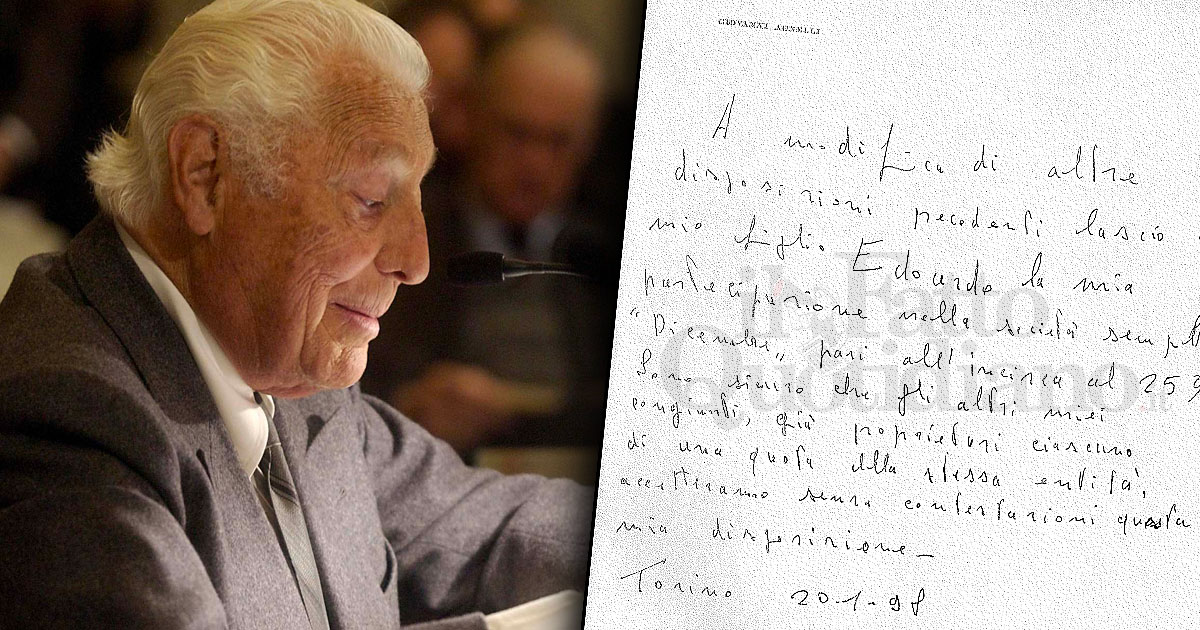 GIOVANNI AGNELLI
A modifica di altre
disposizioni precedenti lascio
mio figlio Edoardo la mia
partecipazione nella società sempl
"Dicembre„ pari all'incirca al 25%
Sono sicuro che gli altri miei
congiunti, già proprietari ciascuno
di una quota della stessa entità,
accetteranno senza contestazioni questa
mia disposizione_
Torino 20-1-98
il Fatto
Quotidiano.it